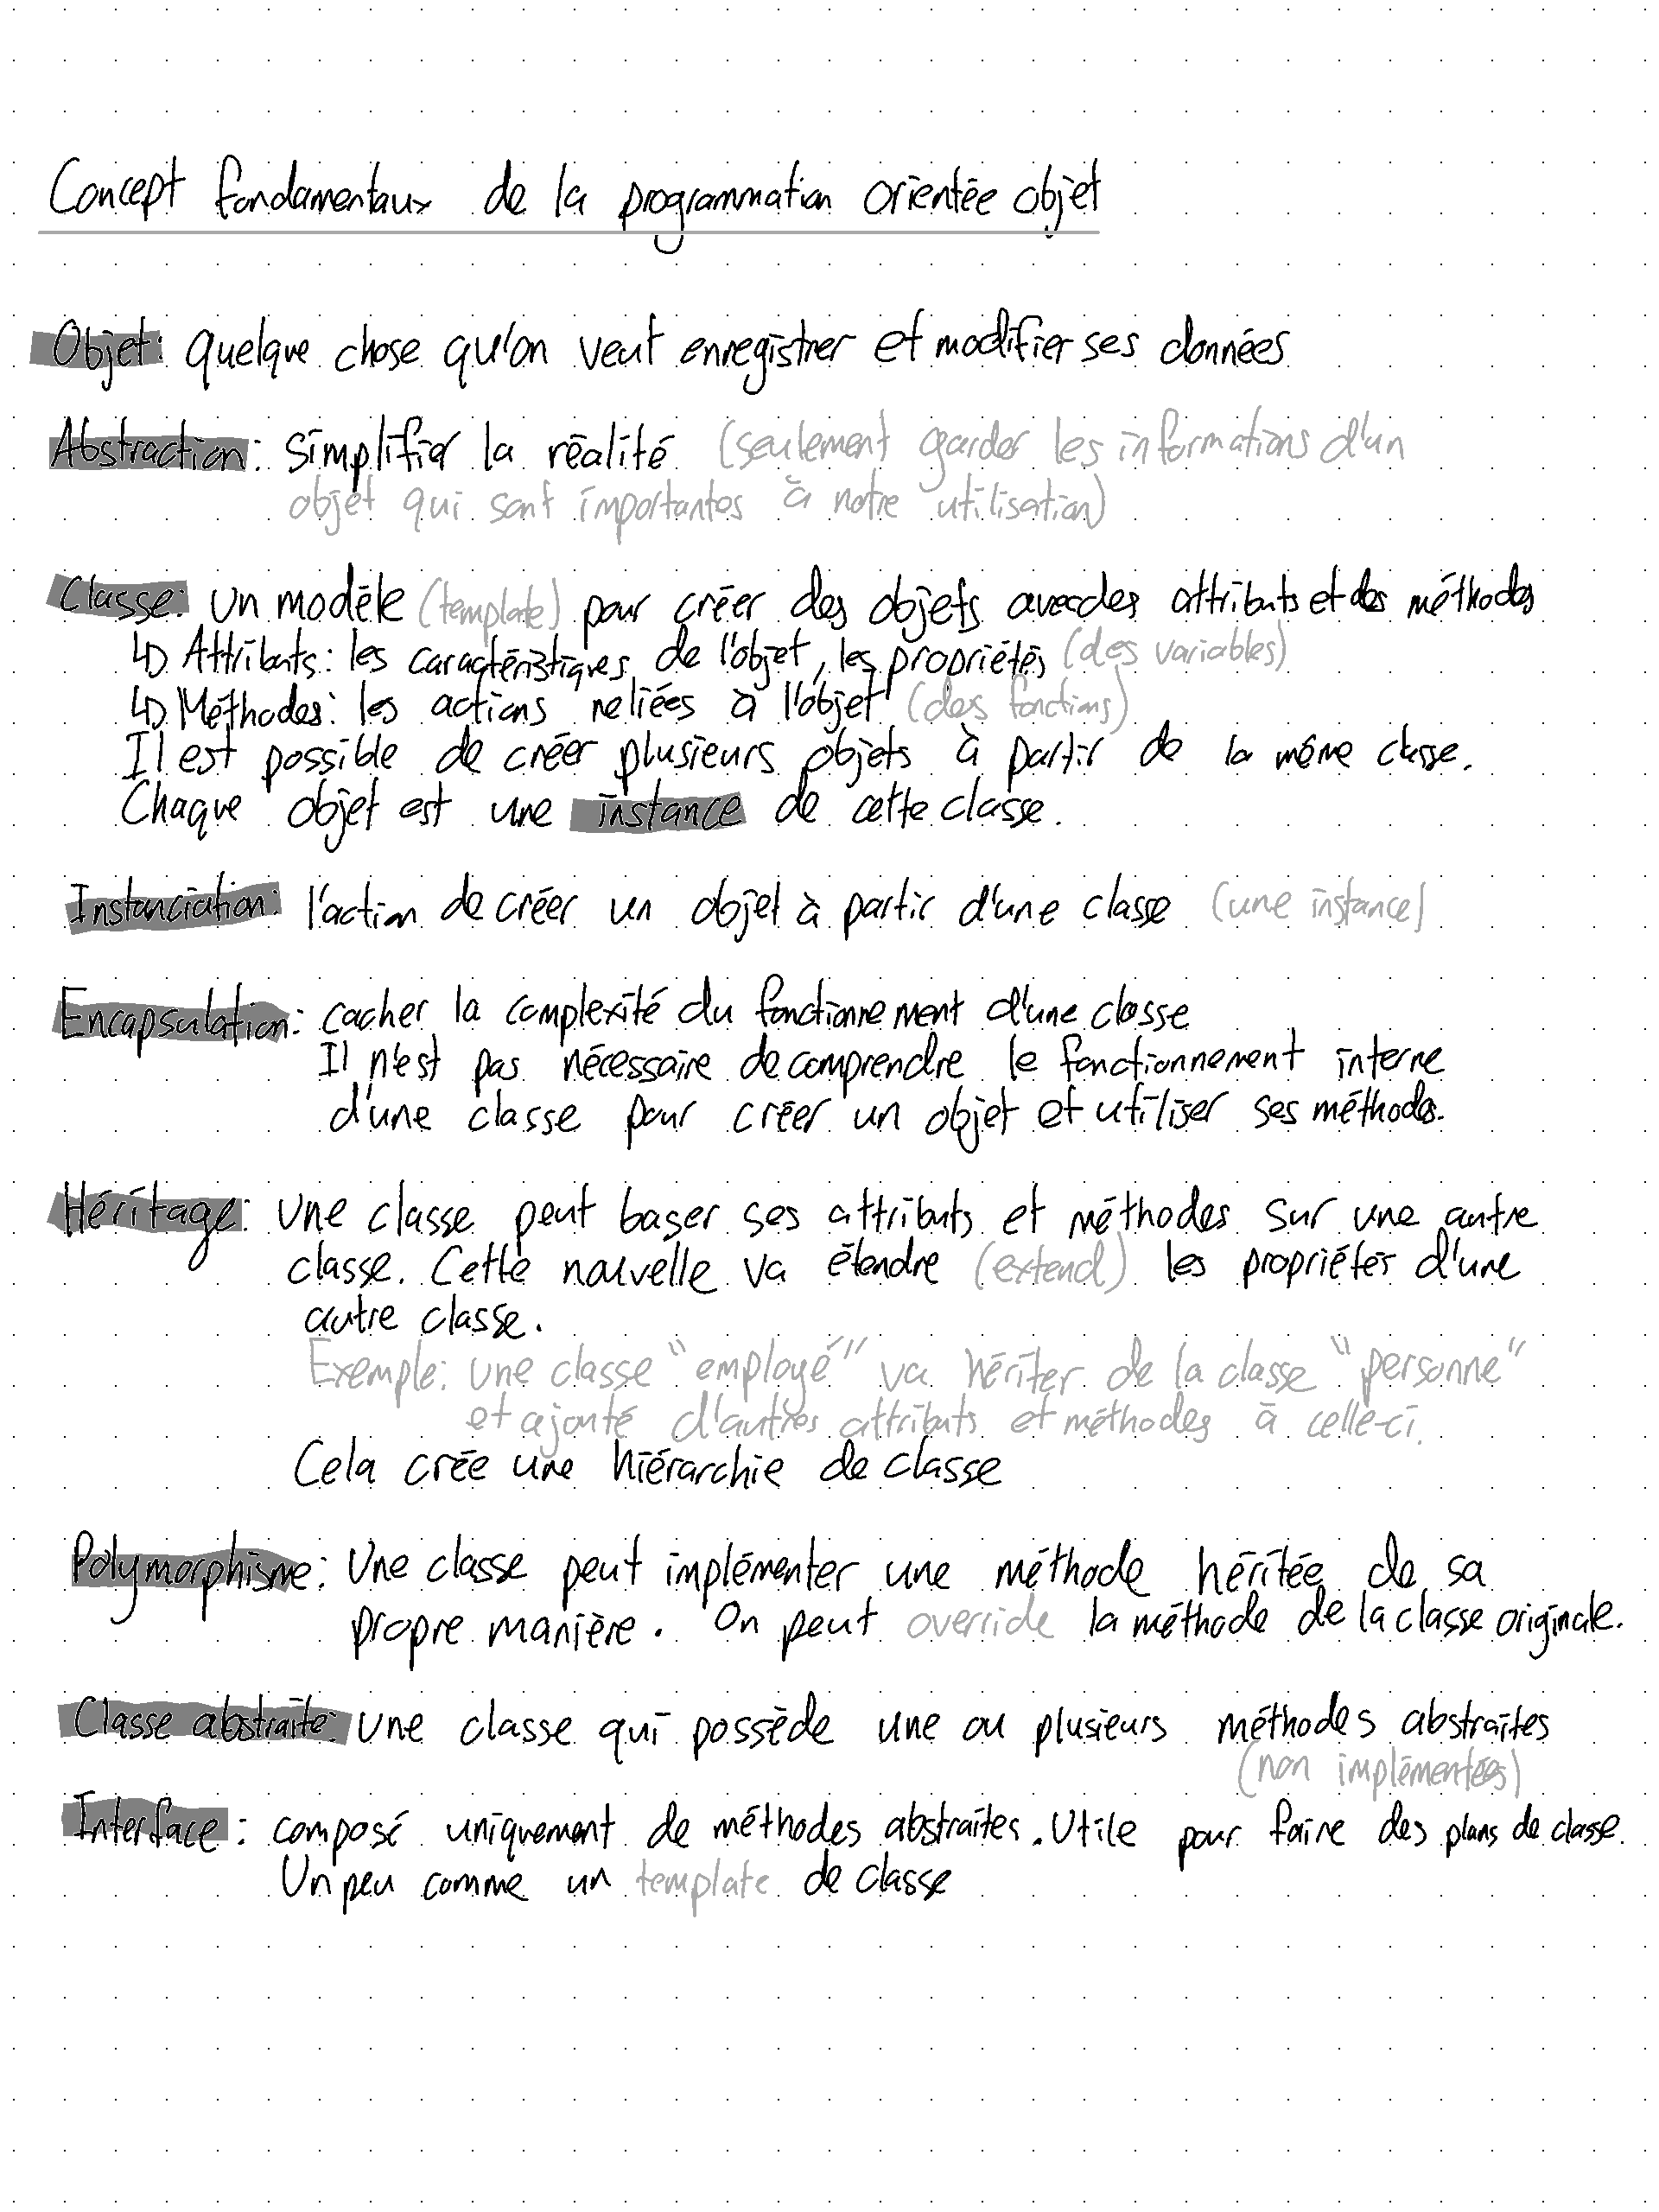 Concept fondamentaux de la programmation orientée objet
Objet: quelque chose qu'on veut enregistrer et modifier ses données
Abstraction: simplifier la réalité (seulement garder les informations d'un
objet qui sont importantes à notre utilisation)
Classe: un modèle (template) pour créer des objets avec des attributs et des méthodes
↳ Attributs: les caractéristiques de l'objet, les propriétés (des variables)
↳ Méthodes: les actions reliées à l'objet (des fonctions)
Il est possible de créer plusieurs objets à partir de la même classe.
Chaque objet est une instance de cette classe.
Instanciation: l'action de créer un objet à partir d'une classe (une instance)
Encapsulation: cacher la complexité du fonctionnement d'une classe
Il n'est pas nécessaire de comprendre le fonctionnement interne
d'une classe pour créer un objet et utiliser ses méthodes.
Héritage: une classe peut baser ses attributs et méthodes sur une autre
classe. Cette nouvelle va étendre (extend) les propriétés d'une
autre classe.
Exemple: une classe "employé" va hériter de la classe "personne"
et ajouté d'autres attributs et méthodes à celle-ci.
Cela crée une hiérarchie de classe
Polymorphisme: Une classe peut implémenter une méthode héritée de sa
propre manière. On peut override la méthode de la classe originale.
Classe abstraite: une classe qui possède une ou plusieurs méthodes abstraites
(non implémentées)
Interface: composé uniquement de méthodes abstraites. Utile pour faire des plans de classe.
Un peu comme un template de classe